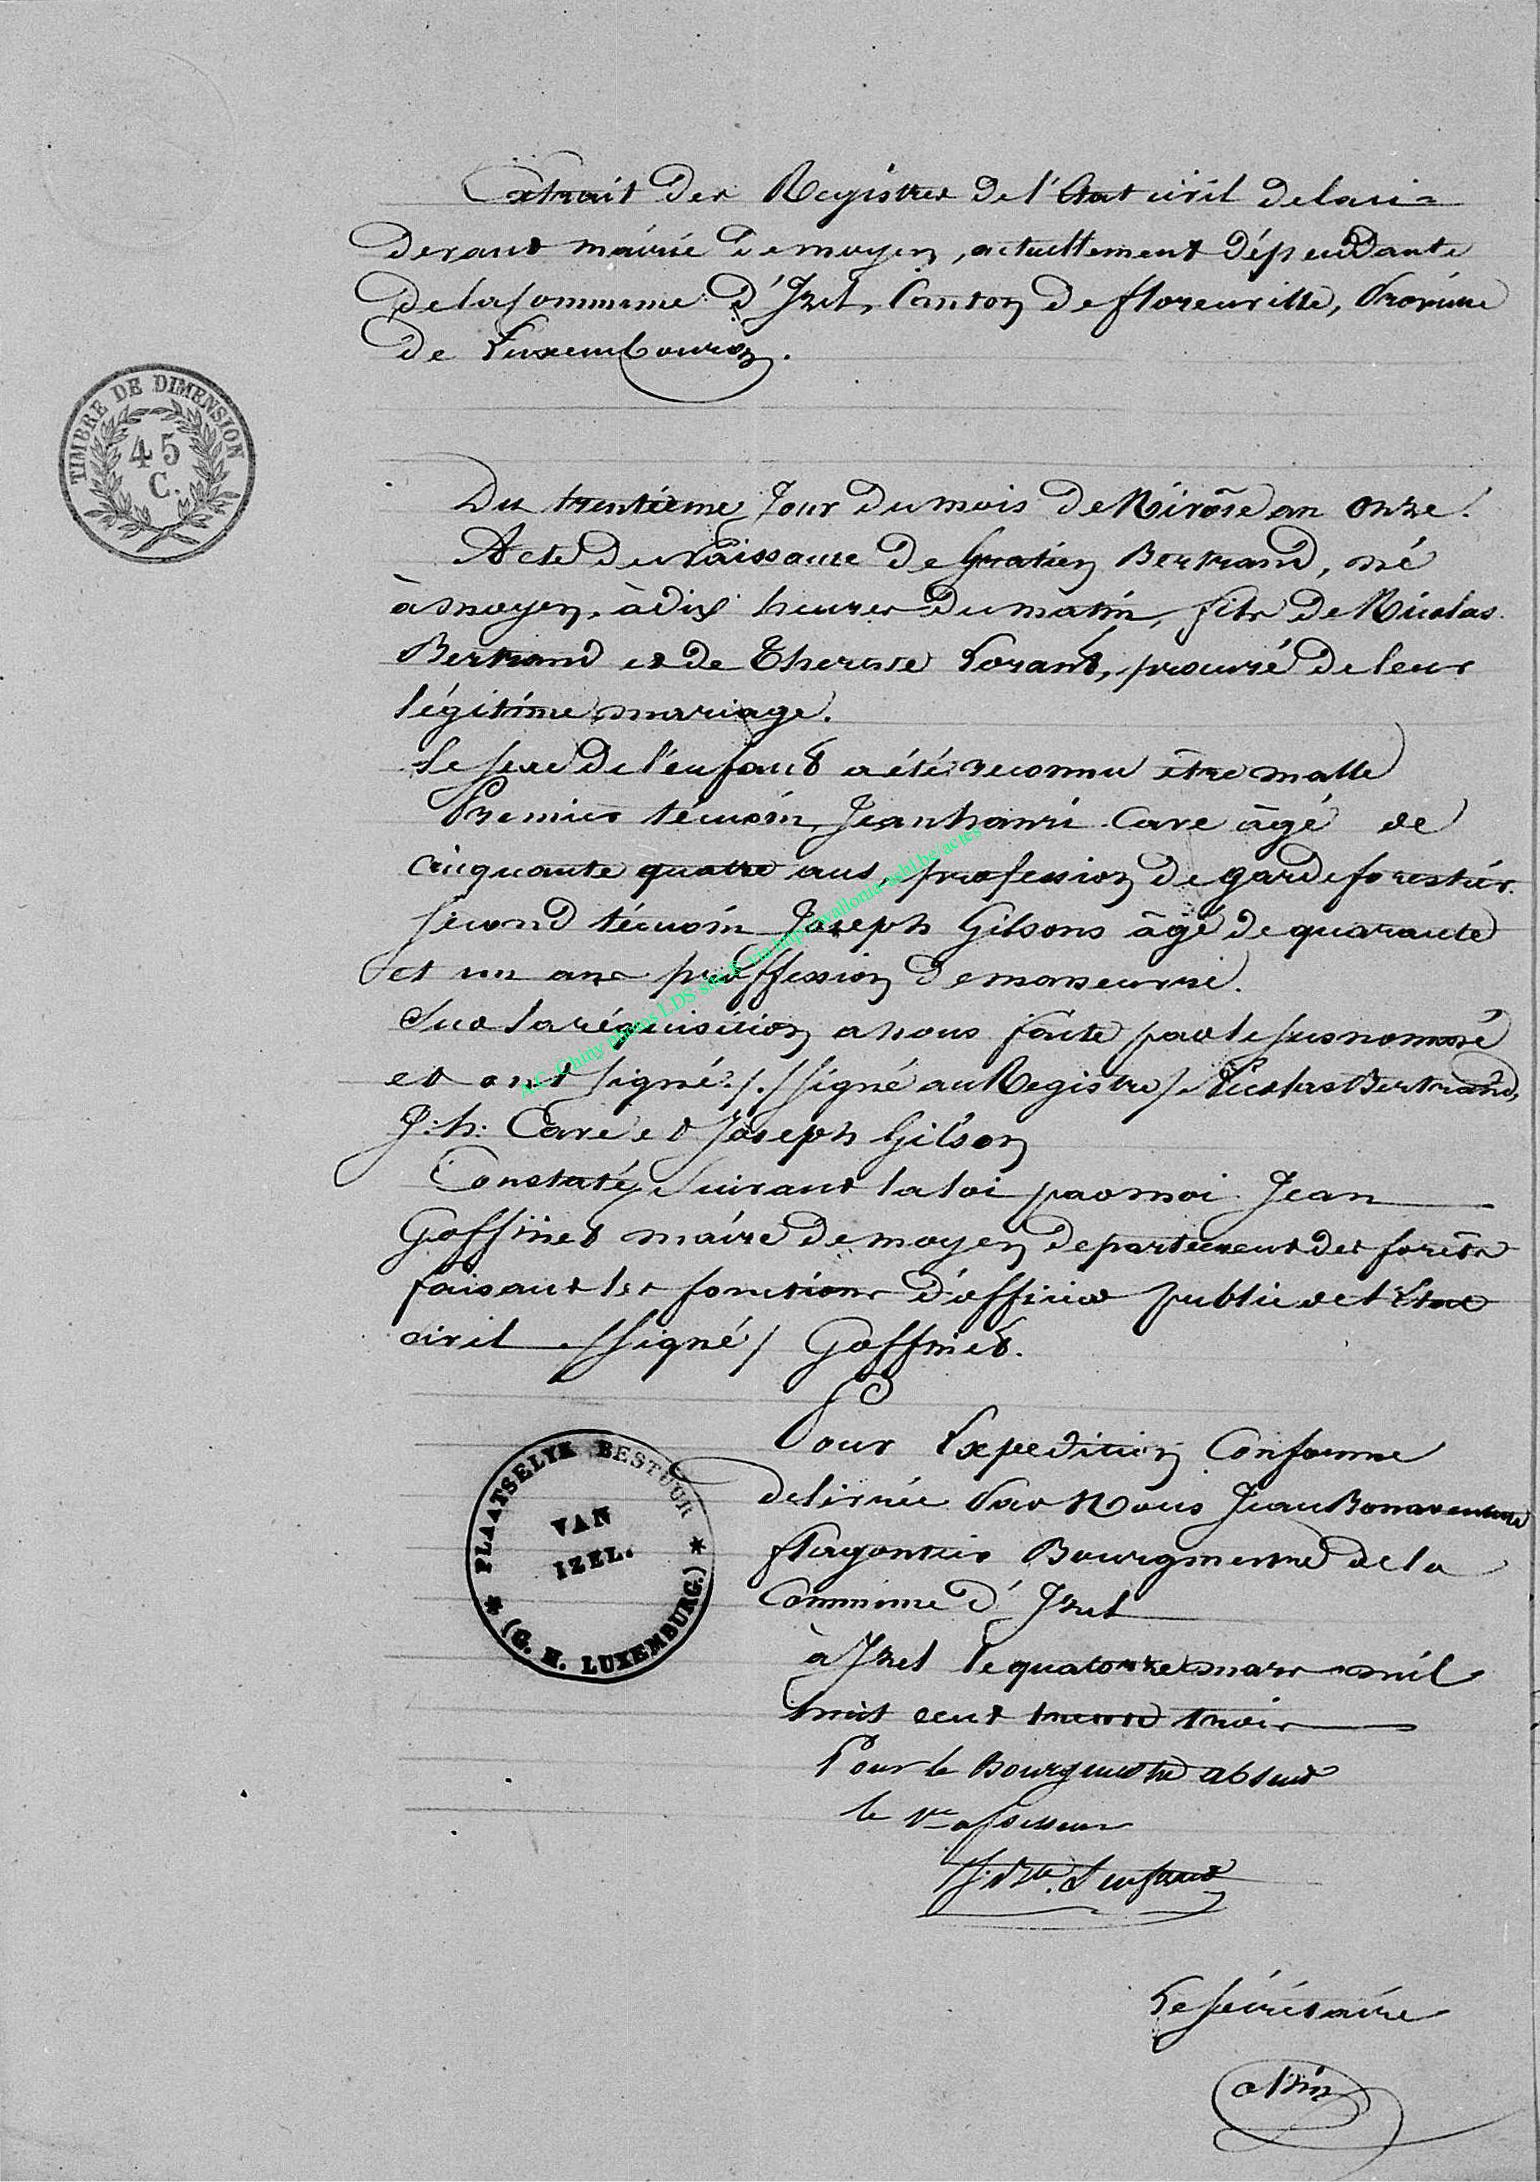 Extrait des Registres de l'Etat civil de la ci=
devant mairie de moyen, actuellement dépendante
de la Commune d'Izel, Canton de florenville, Province
de Luxembourg.
TIMBRE DE DIMENSION
45
C.
Du trentième Jour du mois de Nivôse an Onze.
Acte de Naissance de Gratien Bertrand, né
à moyen, à dix heures du matin, fils de Nicolas
Bertrand et de Therese Lorant, procuré de leur
légitime mariage.
Le sexe de l'enfant a été reconnu être malle
Premier témoin, Jean hanri Care âgé de
cinquante quatre ans, profession de garde forestier.
second témoin Joseph Gilsons âgé de quarante
et un ans proffession de
Sur la réquisition a nous faite par le susnommé
et ont signé ./. /signé au Registre/ Nicolas Bertrand,
J: h: Care et Joseph Gilson
Constaté, suivant la loi par moi Jean
Goffinet maire de moyen departement des forêts
faisant les fonctions d'officier public de l'Etat
civil /signé/ Goffinet.
Pour Expedition Conforme
delivrée Par Nous Jean Bonaventure
flagontier Bourgmestre de la
Commune d'Izel
à Izel le quatorze mars mil
huit cent trente trois
Pour le Bourgmestre absent
le 1er assesseur
PLAATSELYK BESTUUR
VAN
IZEL.
(G. H. LUXEMBURG.)
Le secrétaire
A.C. Chiny photos LDS via http://wallonia-asbl.be/actes